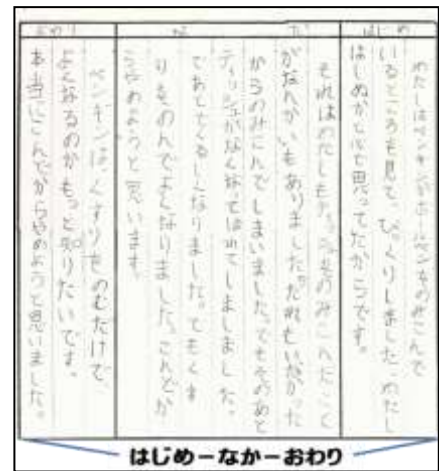 はじめ
わたしはペンギンがボールペンをのみこんで
いるところを見て、びっくりしました。わたし
はしぬかと心で思ってたからです。
なか
それはわたしも
がなんかいもありました。だれもいなかった
からのみこんでしまいました。でもそのあと
ティッシュがなくなてはれてしましました。
であとでくるしくなりました。でもくす
りをのんでよくなりました。こんどか
らやめようと思います。
おわり
ペンギンは、くすりをのむだけで、
よくなるのかもっと知りたいです。
本当にこんどからやめようと思いました。
はじめーなかーおわり